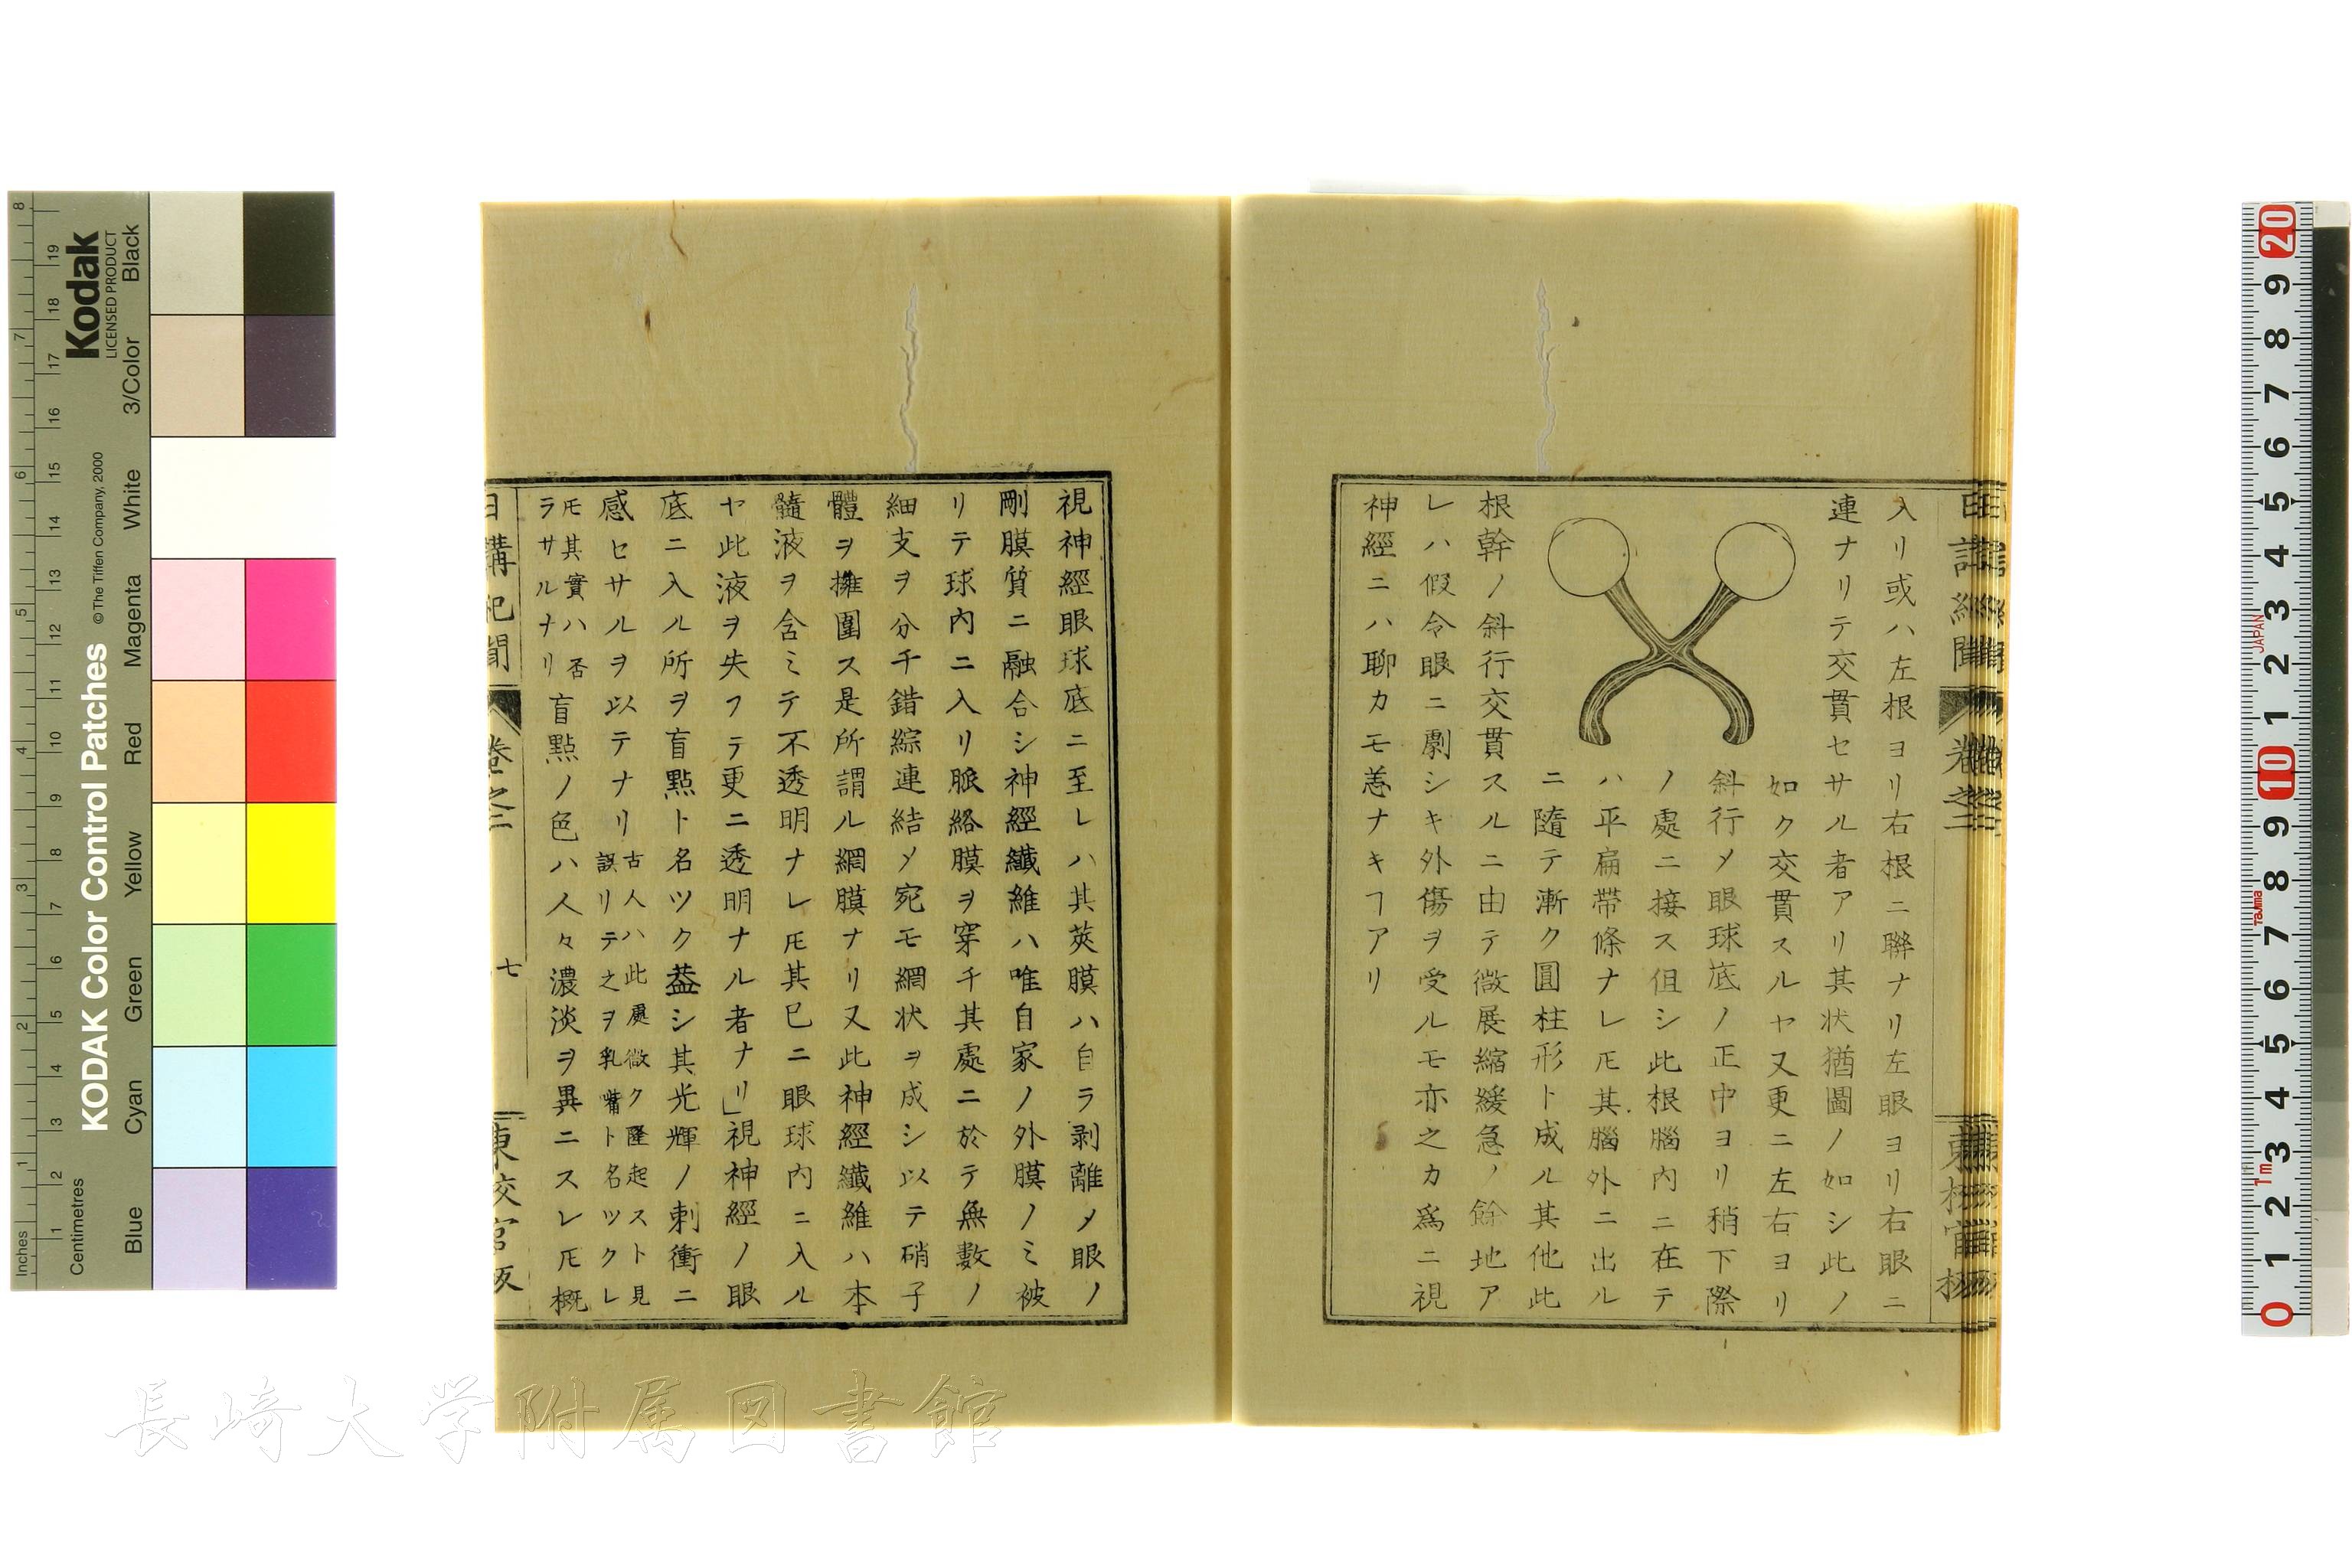 入リ或ハ左根ヨリ右根ニ聯ナリ左眼ヨリ右眼ニ
連ナリテ交貫セサル者アリ其状猶圖ノ如シ此ノ
如ク交貫スルヤ又更ニ左右ヨリ
斜行〆眼球底ノ正中ヨリ稍下際
ノ處ニ接ス但シ此根腦内ニ在テ
ハ平扁帶條ナレ𪜈其腦外ニ出ル
ニ隨テ漸ク圓柱形ト成ル其他此
根幹ノ斜行交貫スルニ由テ微展縮緩急ノ餘地ア
レハ假令眼ニ劇シキ外傷ヲ受ルモ亦之カ爲ニ視
神經ニハ聊カモ恙ナキヿアリ
視神經眼球底ニ至レハ其莢膜ハ自ラ剥離〆眼ノ
剛膜質ニ融合シ神經纖維ハ唯自家ノ外膜ノミ被
リテ球内ニ入リ脈絡膜ヲ穿チ其處ニ於テ無數ノ
細支ヲ分チ錯綜連結〆宛モ網状ヲ成シ以テ硝子
體ヲ擁圍ス是所謂ル網膜ナリ又此神經纖維ハ本
髓液ヲ含ミテ不透明ナレ𪜈其已ニ眼球内ニ入ル
ヤ此液ヲ失フテ更ニ透明ナル者ナリ」視神經ノ眼
底ニ入ル所ヲ盲點ト名ツク葢シ其光輝ノ刺衝ニ
感セサルヲ以テナリ古人ハ此處微ク隆起スト見
誤リテ之ヲ乳嘴ト名ツクレ
𪜈其實ハ否
ラサルナリ盲點ノ色ハ人々濃淡ヲ異ニスレ𪜈概
日講紀聞
卷之二
七
東校官版
長崎大学附属図書館
Kodak
LICENSED PRODUCT
KODAK Color Control Patches
©The Tiffen Company, 2000
Inches
Centimetres
Blue
Cyan
Green
Yellow
Red
Magenta
White
3/Color
Black
1 2 3 4 5 6 7 8
1 2 3 4 5 6 7 8 9 10 11 12 13 14 15 16 17 18 19
20 9 8 7 6 5 4 3 2 1 10 9 8 7 6 5 4 3 2 1 0
JAPAN
Tajima
1m